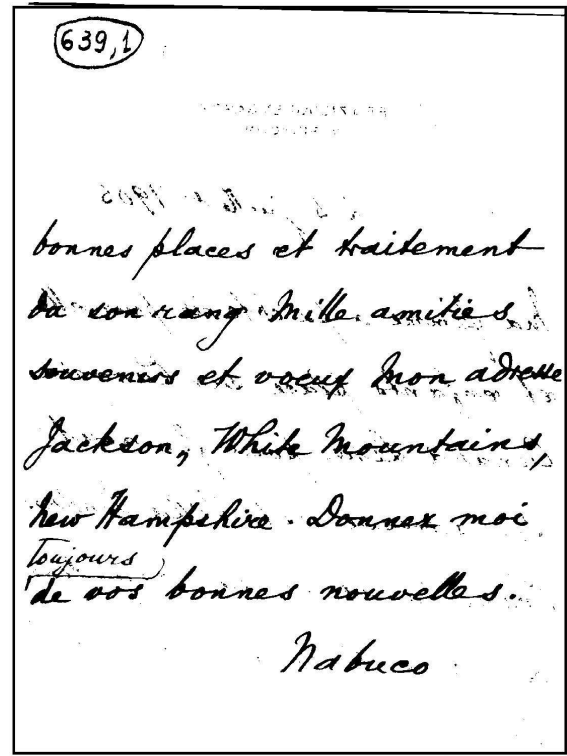 639,1
1905
bonnes places et traitement
da son rang. Mille amitiés
souvenirs et voeux Mon adresse
Jackson, White Mountains,
New Hampshire. Donnez moi
Toujours
de vos bonnes nouvelles.
Nabuco